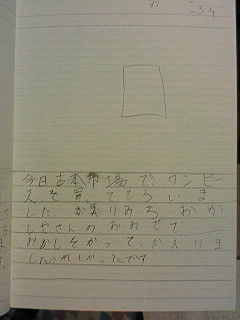 今日古本市場で、ワンピー
スを買てもらいま
した。かえりみち、おか
しやさんのおみせで
おかしをかって、かえりま
した。うれしかったです